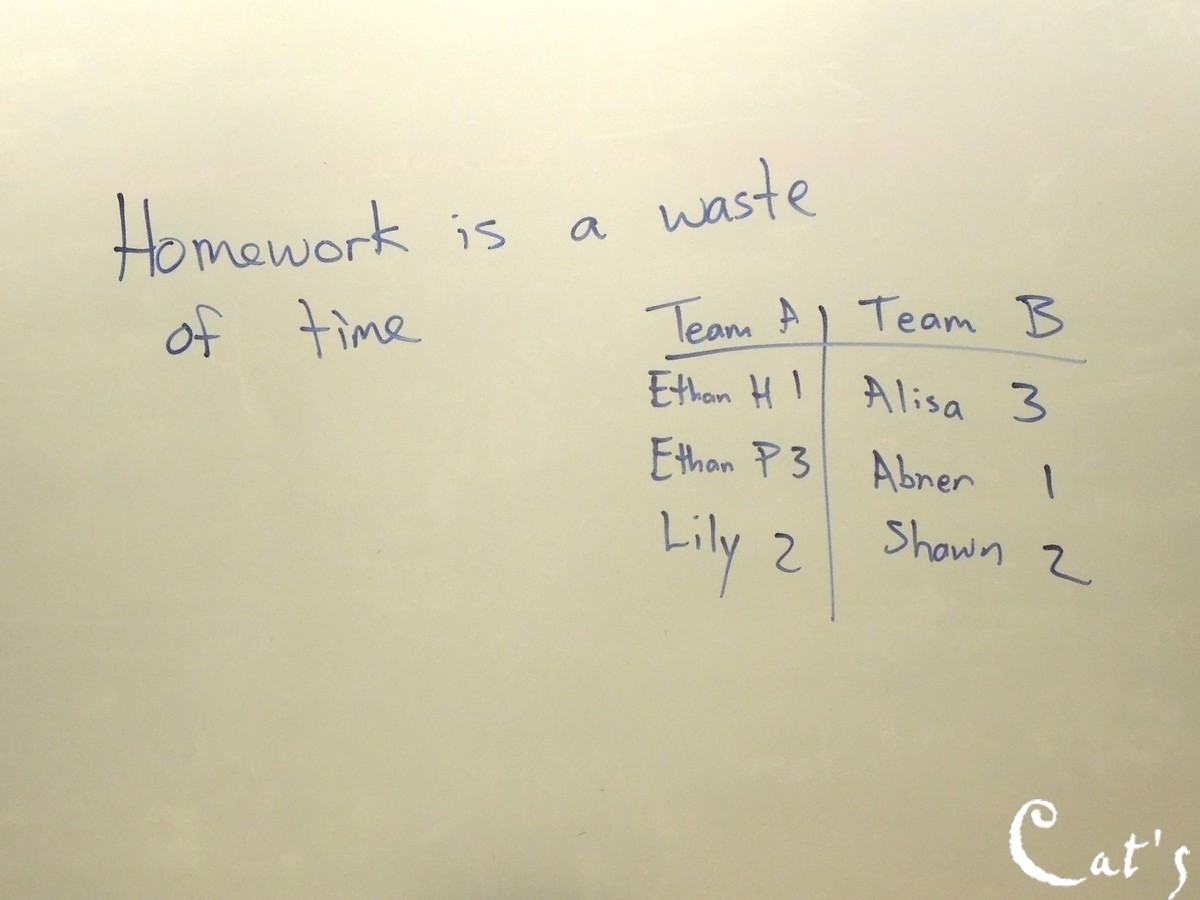 Homework is a waste
of time
Team A Team B
Ethan H 1 Alisa 3
Ethan P 3 Abner 1
Lily 2 Shawn 2
Cat's